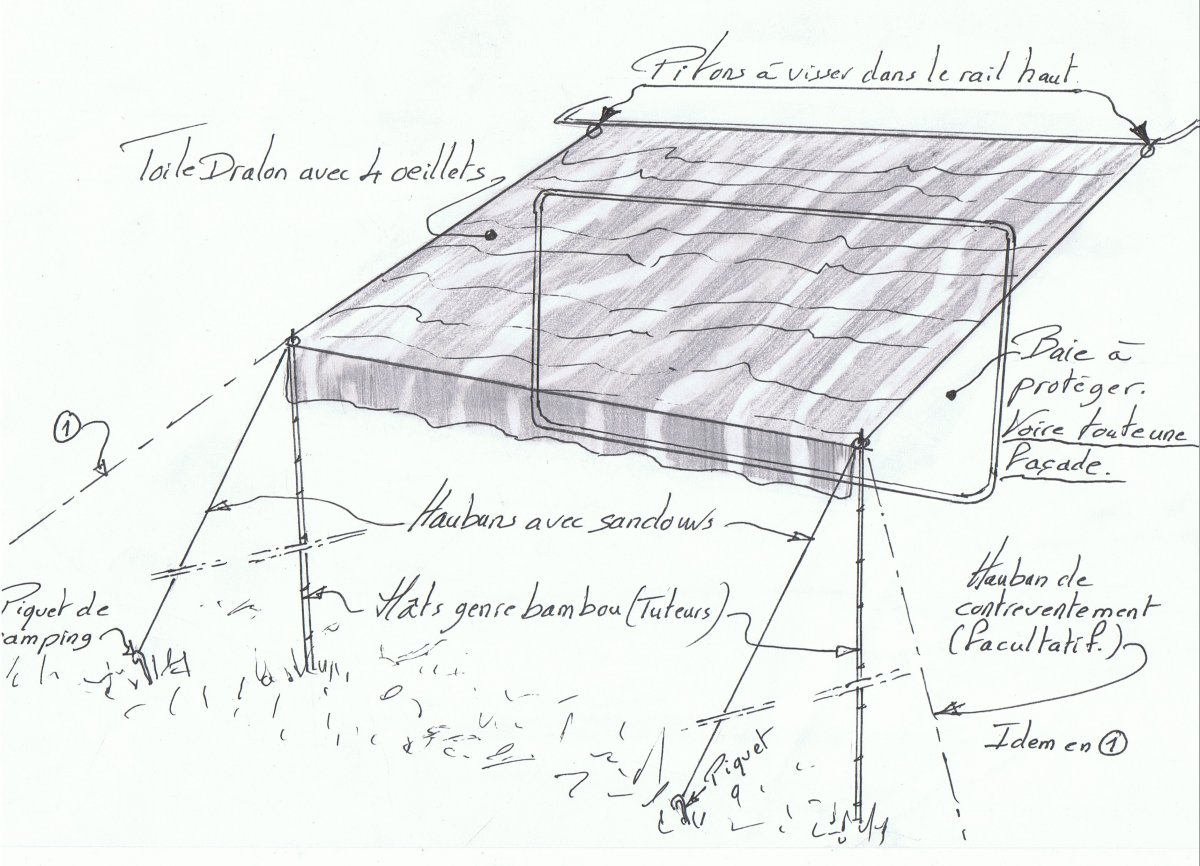 Pitons à visser dans le rail haut.
Toile Dralon avec 4 oeillets
Baie à
protéger.
Voire toute une
façade.
1
Haubans avec sandows
Hauban de
contreventement
(facultatif.)
Piquet de
camping
Mâts genre bambou (Tuteurs)
Idem en 1
Piquet